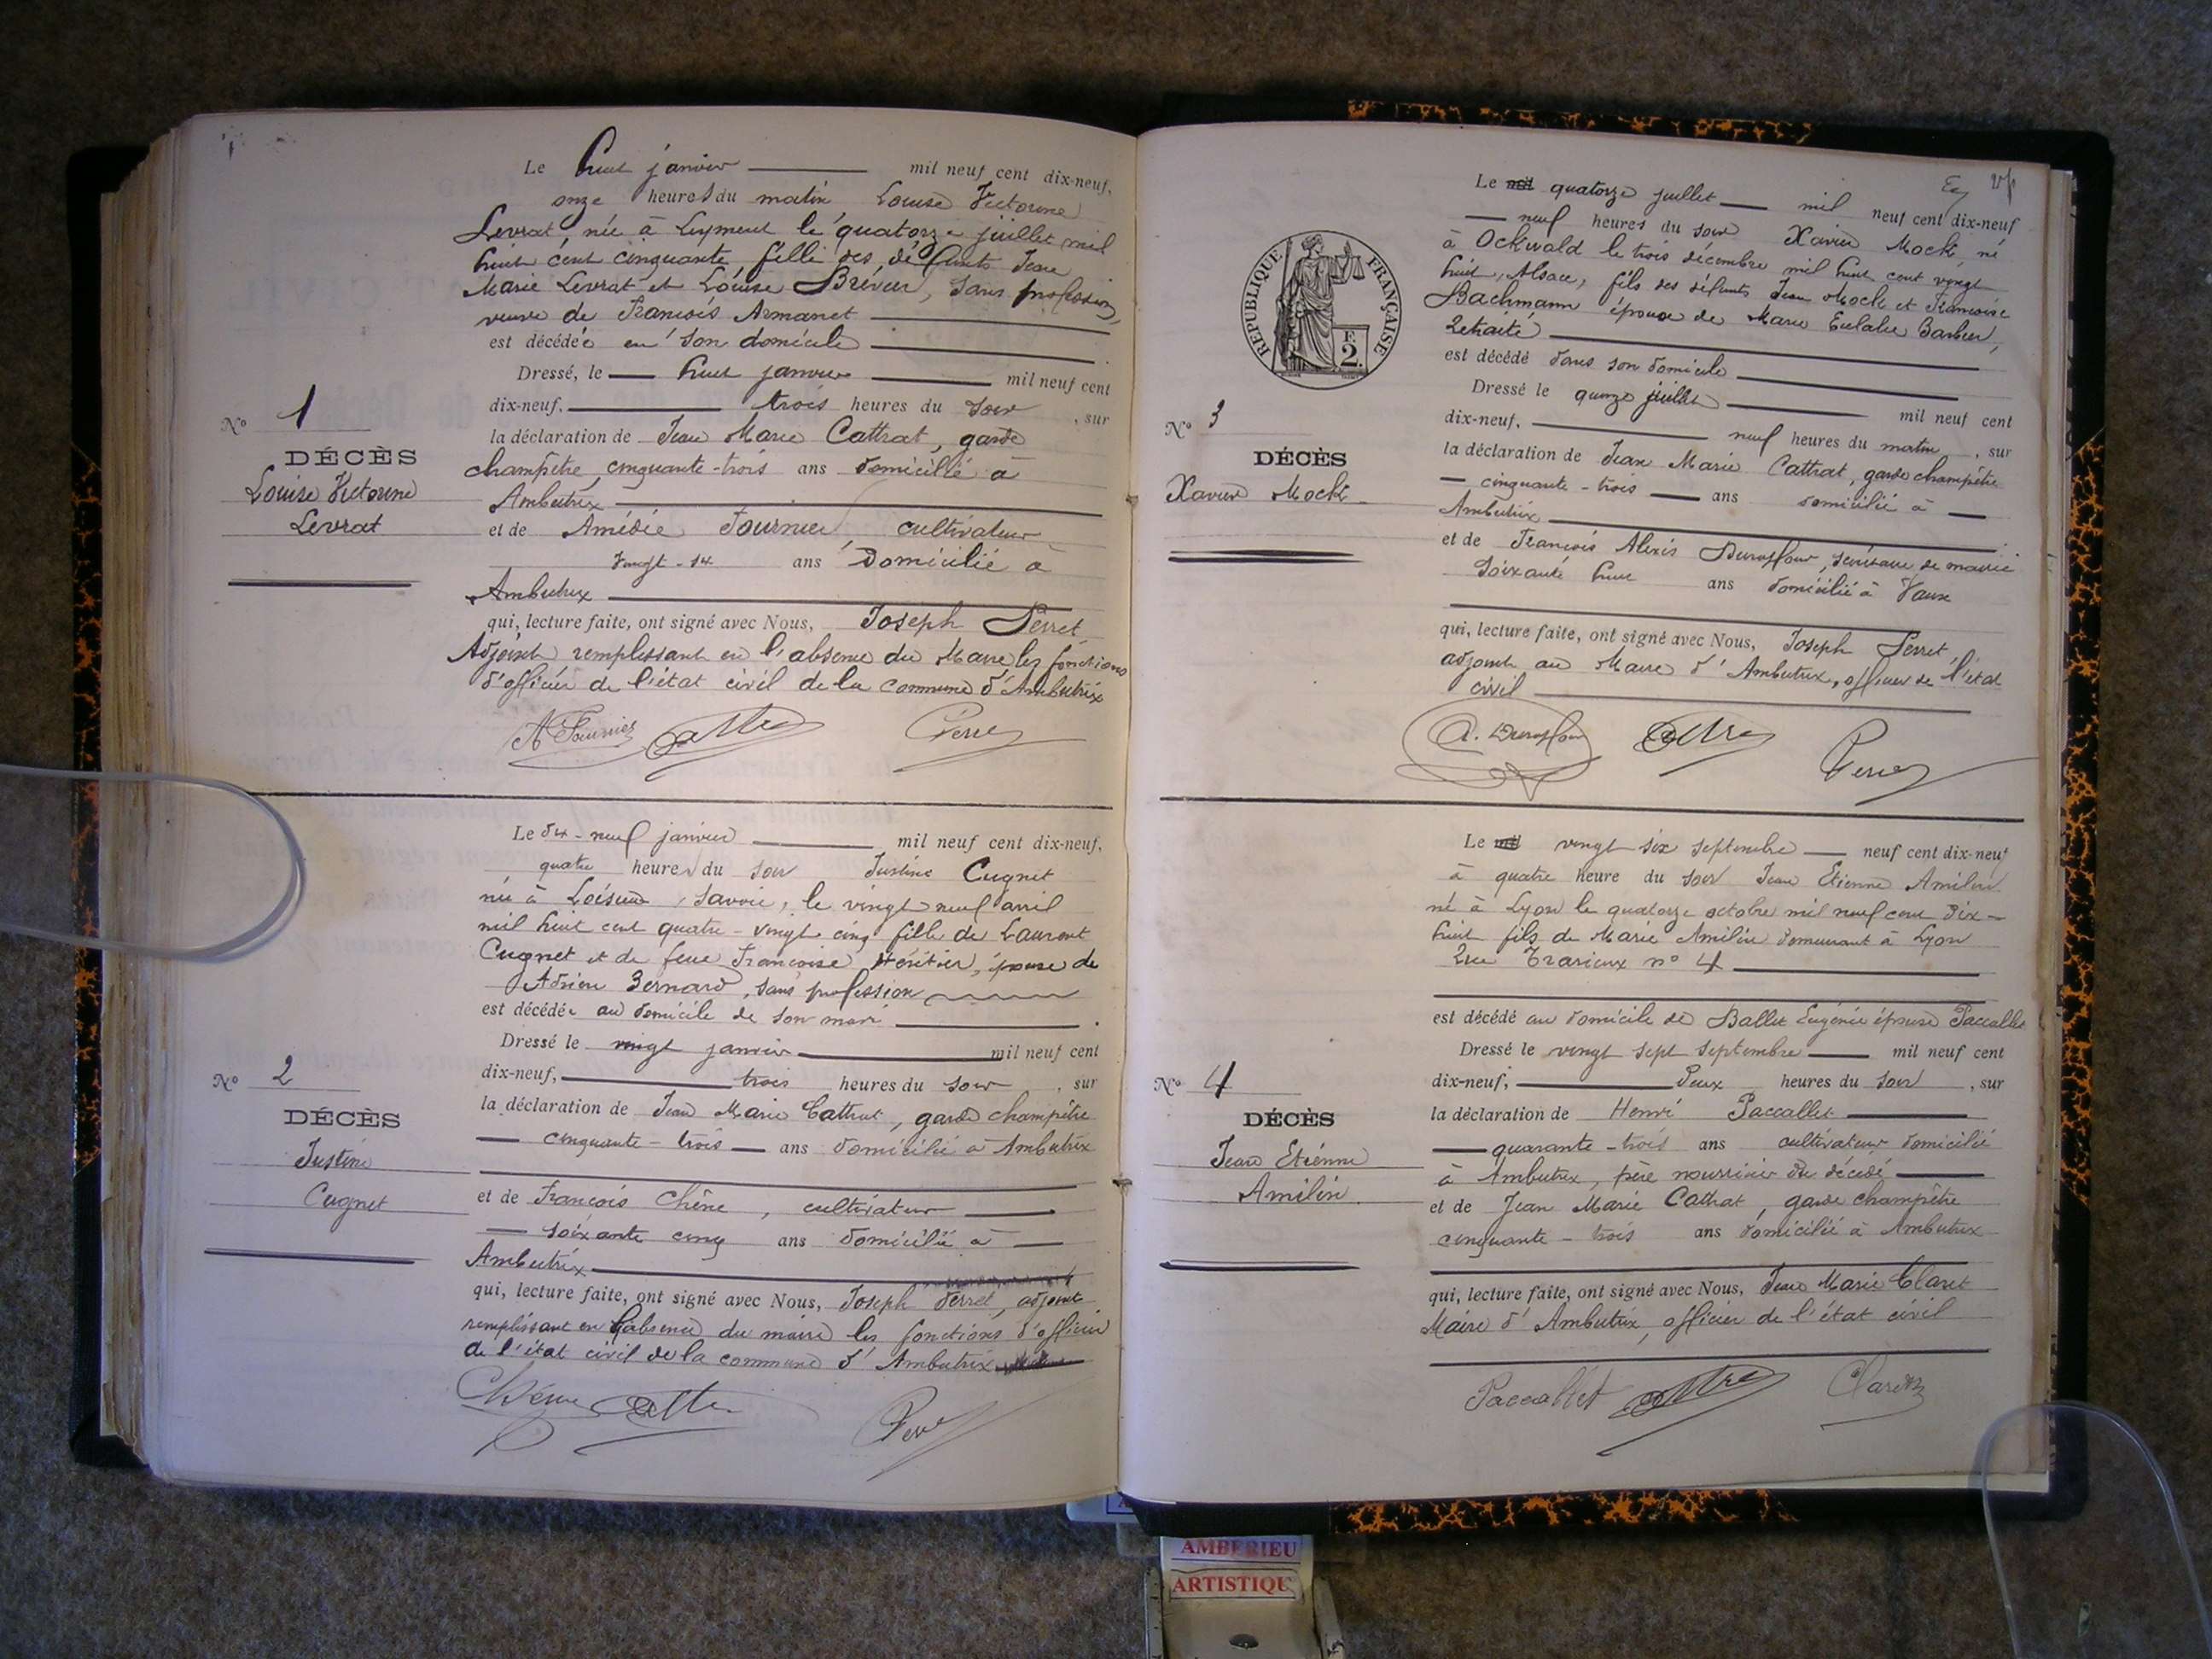 Le huit janvier mil neuf cent dix-neuf,
onze heures du matin Louise Victorine
Levrat, née à Leyment le quatorze juillet mil
huit cent cinquante, fille des défunts Jean
Marie Levrat et Louise Brévier, sans profession,
veuve de François Armanet
est décédée en son domicile
Dressé, le huit janvier mil neuf cent
dix-neuf, trois heures du soir, sur
la déclaration de Jean Marie Cattrat, garde
champêtre, cinquante-trois ans domicilié à
Ambutrix
et de Amédée Fournier, cultivateur
ans Domicilié à
Ambutrix
qui, lecture faite, ont signé avec Nous, Joseph Perret
Adjoint remplissant en l'absence du Maire les fonctions
d'officier de l'état civil de la commune d'Ambutrix
A Fournier Cattra Perret
N° 1
DÉCÈS
Louise Victorine
Levrat
Le dix-neuf janvier mil neuf cent dix-neuf,
quatre heures du soir Justine Cugnet
née à Loisieux, Savoie, le vingt neuf avril
mil huit cent quatre-vingt cinq fille de Laurent
Cugnet et de feue Françoise Héritier, épouse de
Adrien Bernard, sans profession
est décédée au domicile de son mari
Dressé le vingt janvier mil neuf cent
dix-neuf, trois heures du soir, sur
la déclaration de Jean Marie Cattrat, garde champêtre
cinquante-trois ans domicilié à Ambutrix
et de François Chêne, cultivateur
soixante cinq ans domicilié à
Ambutrix
qui, lecture faite, ont signé avec Nous, Joseph Perret, adjoint
remplissant en l'absence du maire les fonctions d'officier
de l'état civil de la commune d'Ambutrix
Chêne Cattra Perret
N° 2
DÉCÈS
Justine
Cugnet
Le quatorze juillet mil neuf cent dix-neuf
neuf heures du soir Xavier Mock, né
à Ockwald le trois décembre mil huit cent vingt
huit, Alsace, fils des défunts Jean Mock et Françoise
Bachmann époux de Marie Eulalie Barbier,
Retraité
est décédé dans son domicile
Dressé le quinze juillet mil neuf cent
dix-neuf, neuf heures du matin, sur
la déclaration de Jean Marie Cattrat, garde champêtre
cinquante-trois ans domicilié à
Ambutrix
et de François Alexis Duraffour, secrétaire de mairie
soixante huit ans domicilié à Vaux
qui, lecture faite, ont signé avec Nous, Joseph Perret,
adjoint au Maire d'Ambutrix, officier de l'état
civil
A. Duraffour Cattra Perret
RÉPUBLIQUE FRANÇAISE
F. 2.
N° 3
DÉCÈS
Xavier Mock
Le vingt six septembre neuf cent dix-neuf
à quatre heure du soir Jean Etienne Amilin
né à Lyon le quatorze octobre mil neuf cent dix-
huit fils de Marie Amilin demeurant à Lyon
Rue Trarieux n° 4
est décédé au domicile de Ballet Eugénie épouse Paccallet
Dressé le vingt sept septembre mil neuf cent
dix-neuf, Deux heures du soir, sur
la déclaration de Henri Paccallet
quarante-trois ans cultivateur domicilié
à Ambutrix, père nourricier du décédé
et de Jean Marie Cattrat, garde champêtre
cinquante-trois ans domicilié à Ambutrix
qui, lecture faite, ont signé avec Nous, Jean Marie Claret
Maire d'Ambutrix, officier de l'état civil
Paccallet Cattra Claret
N° 4
DÉCÈS
Jean Etienne
Amilin
AMBERIEU
ARTISTIQU